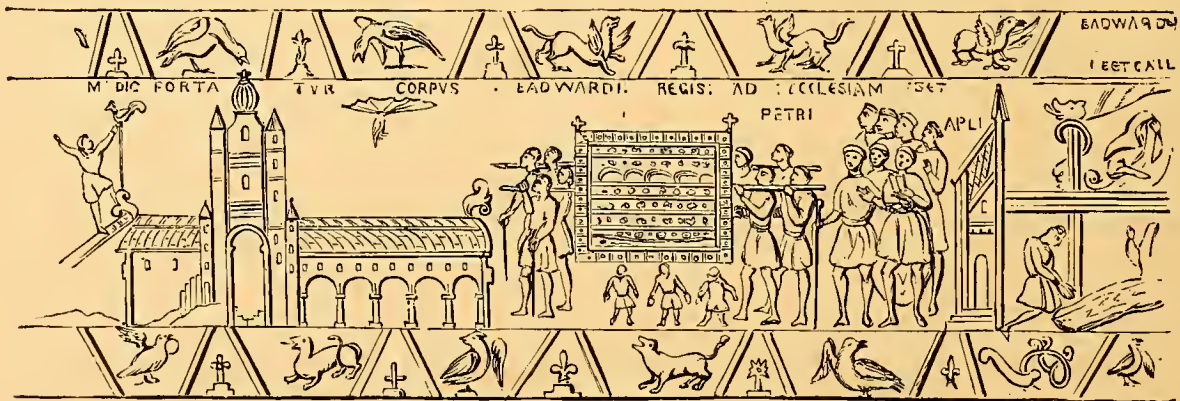 EADWARDUS
M DIC FORTA TVR CORPVS · EADWARDI: REGIS: AD : ECCLESIAM SET
PETRI APLI